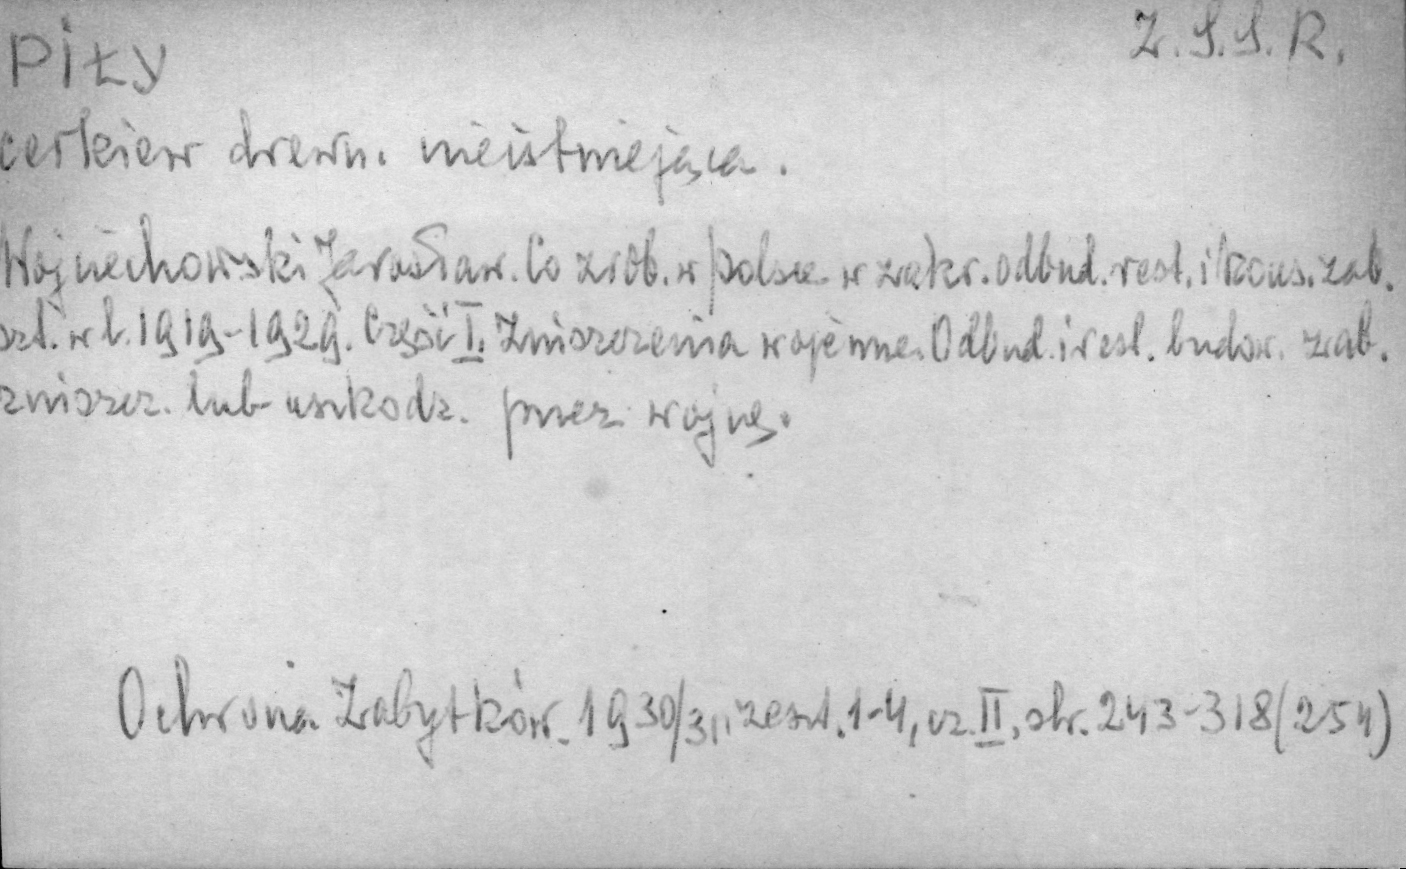 Piły
Z.S.S.R.
cerkiew drewn. nieistniejąca.
Wojciechowski Jarosław. Co zrob. w Polsce w zakr. odbud. rest. i kons. zab.
szt. w l. 1919-1929. Część I. Zniszczenia wojenne. Odbud. i rest. budow. zab.
zniszcz. lub uszkodz. przez wojnę.
Ochrona Zabytków. 1930/31, zesz. 1-4, cz. II, str. 243-318 (254)